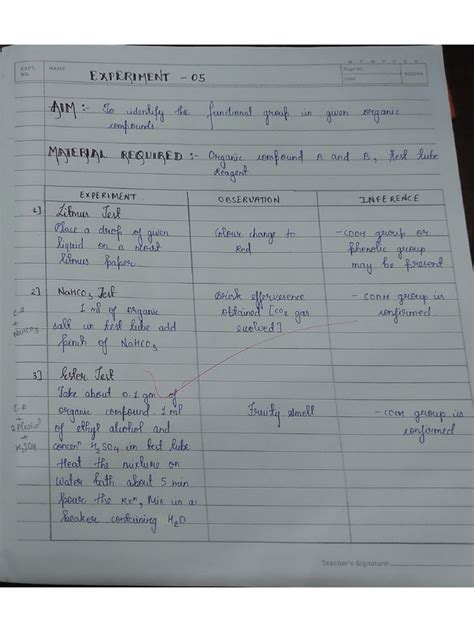 EXPT. NO.
NAME
EXPERIMENT - 05
Page No.
Date
AIM :- To identify the functional group in given organic
compounds.
MATERIAL REQUIRED :- Organic compound A and B, test tube
Reagent
EXPERIMENT
OBSERVATION
INFERENCE
1] Litmus Test
Place a drop of given
liquid on a moist
litmus paper
Colour change to
Red
-COOH group or
phenolic group
may be present
2] NaHCO3 Test
1 ml of organic
salt in test tube add
pinch of NaHCO3
+
NaHCO3
Brisk effervesence
obtained [CO2 gas
evolved]
- COOH group is
conformed
3] Ester Test
Take about 0.1 gm of
organic compound. 1 ml
of ethyl alcohol and
concenn H2SO4 in test tube
Heat the mixture on
water bath about 5 min
pour the Rxn, Mix in a
beaker containing H2O
+
+
H2SO4
Fruity smell
- COOH group is
conformed
Teacher's Signature